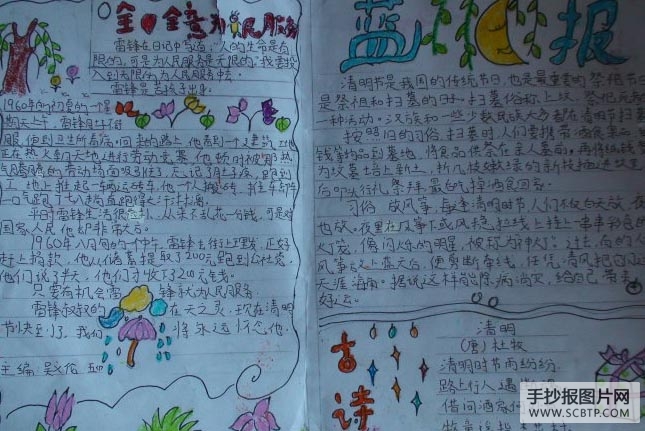 全心全意为人民服务
雷锋在日记中写道:“人的生命是有
限的,可是为人民服务是无限的,我要投
入到无限的为人民服务中去。
雷锋是苦孩子出身。
1960年的初夏的一个星
服,便到卫生所看病,回来的路上,他看到一个建筑工地
正在热火朝天地进行劳动竞赛,他顿时被那热
气腾腾的劳动场面吸引住了,忘记了肚子疼,跑到
工地上推起一辆运砖车
平时雷锋生活很
国家人民,他却非常大方。
1960年八月旬的一个中午,雷锋上街
赶上捐款,他从储蓄里取了200元跑到公社党
他们说了半天,他们才收下了200元钱。
只要有机会雷锋就为人民服务
雷锋叔叔的在天之灵,现在清明
节快到了,我们将永远怀念他。
主编:
蓝报
清明节是我国的传统节日,也是最重要的祭祖节日
是祭祖和扫墓的日,扫墓俗称上坟,祭祀死者的
一种活动。汉族和一些少数民族大多都在清明节扫墓
按照旧的习俗,扫墓时,人们要携带酒食果品、纸
钱等物品到墓地,将食品供祭在亲人墓前,再将纸钱焚
为坟墓培上新土,折几枝嫩绿的新枝插在坟上
后叩头行礼祭拜,最后吃掉酒食回家。
习俗:放风筝,每逢清明时节,人们不仅白天放,夜
也放。夜里在风筝下或风稳拉线上挂上一串串彩色的
灯笼,像闪烁的明星,被称为神灯。过去,有的人
风筝放上蓝天后,便剪断牵线,任凭清风把它们送
天涯海角。据说这样能除病消灾,给自己带来
好运。
古诗
清明
(唐)杜牧
清明时节雨纷纷,
路上行人
借问酒家
手抄报图片网
WWW.SCBTP.COM